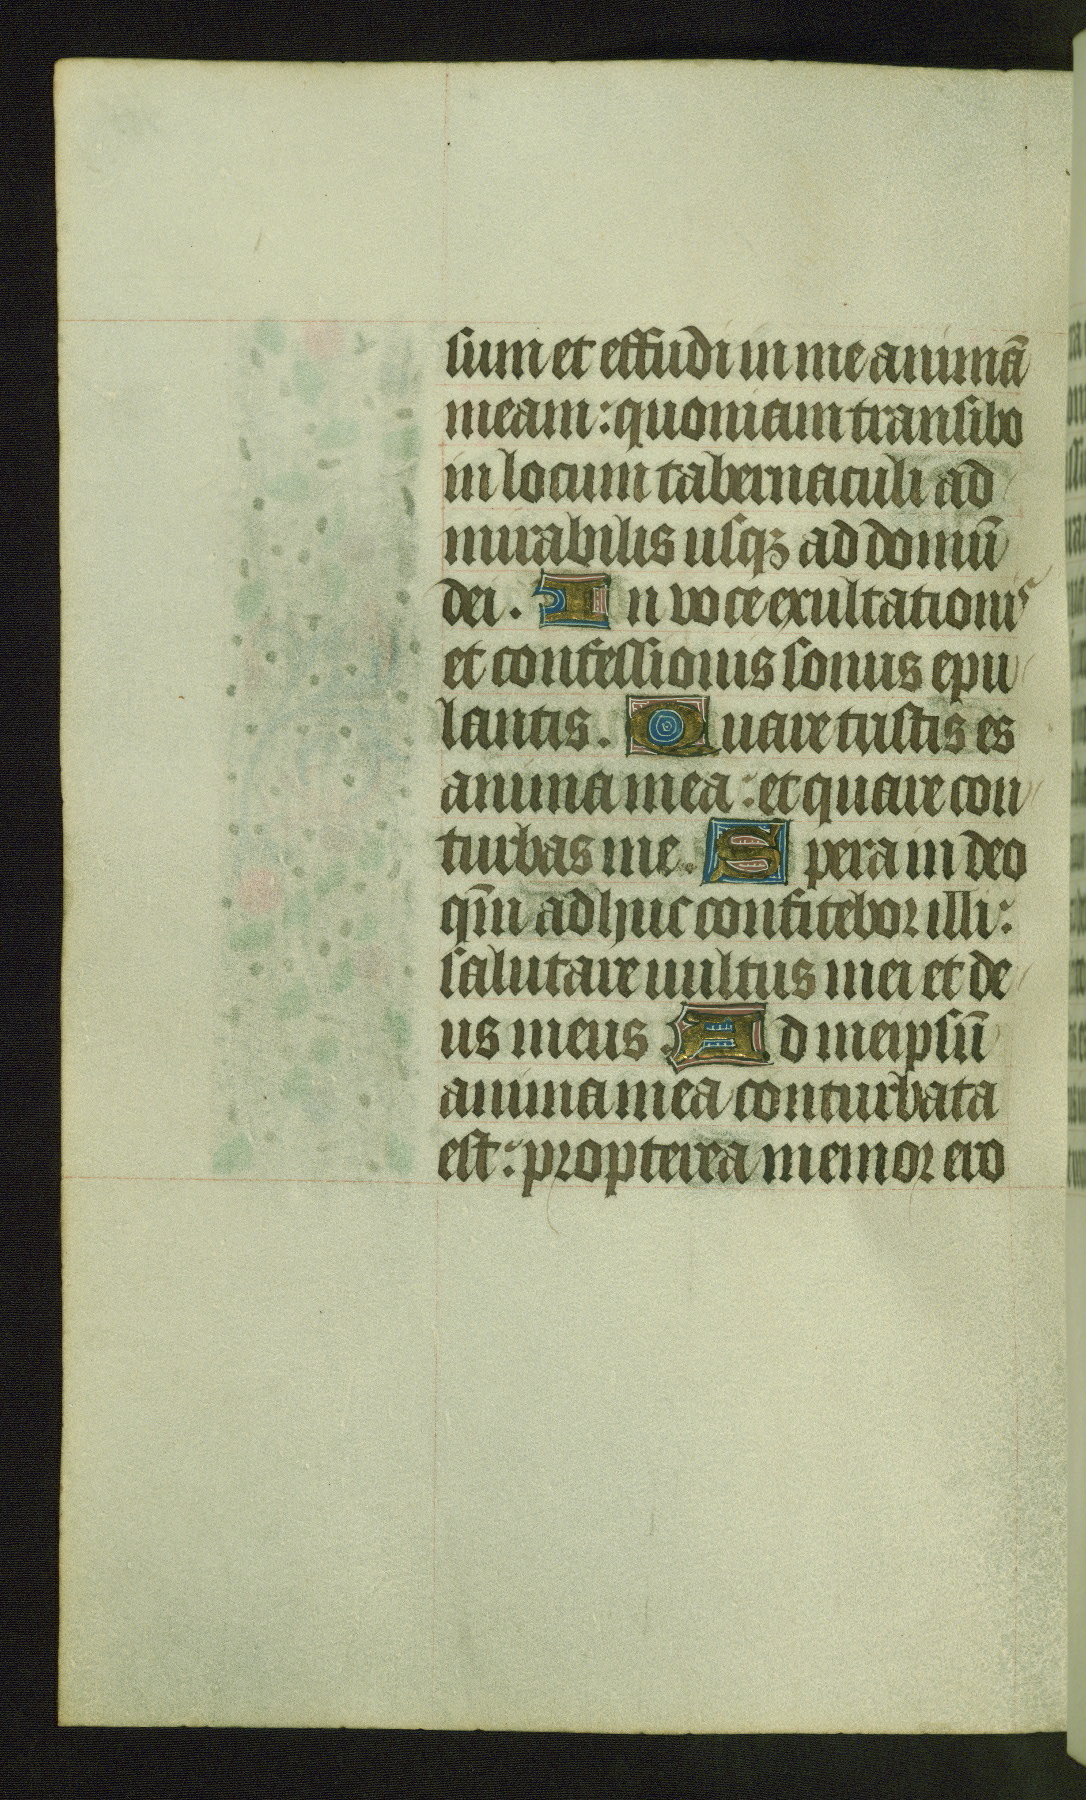 sum et effudi in me animā
meam: quoniam transibo
in locum tabernaculi ad
mirabilis usqꝫ ad domū
dei. In voce exultationis
et confessionis sonus epu
lantis. Quare tristis es
anima mea: et quare con
turbas me. Spera in deo
qm̄ adhuc confitebor illi:
salutare uultus mei et de
us meus. Ad meipsū
anima mea conturbata
est: propterea memor ero